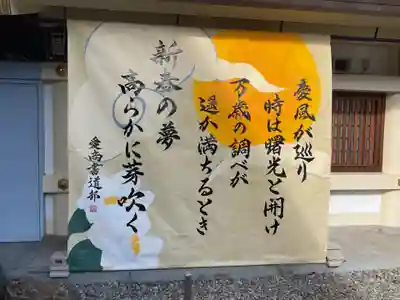 慶風が巡り
時は曙光と開け
万歳の調べが
遥か満ちるとき
新春の夢
高らかに芽吹く
愛商書道部